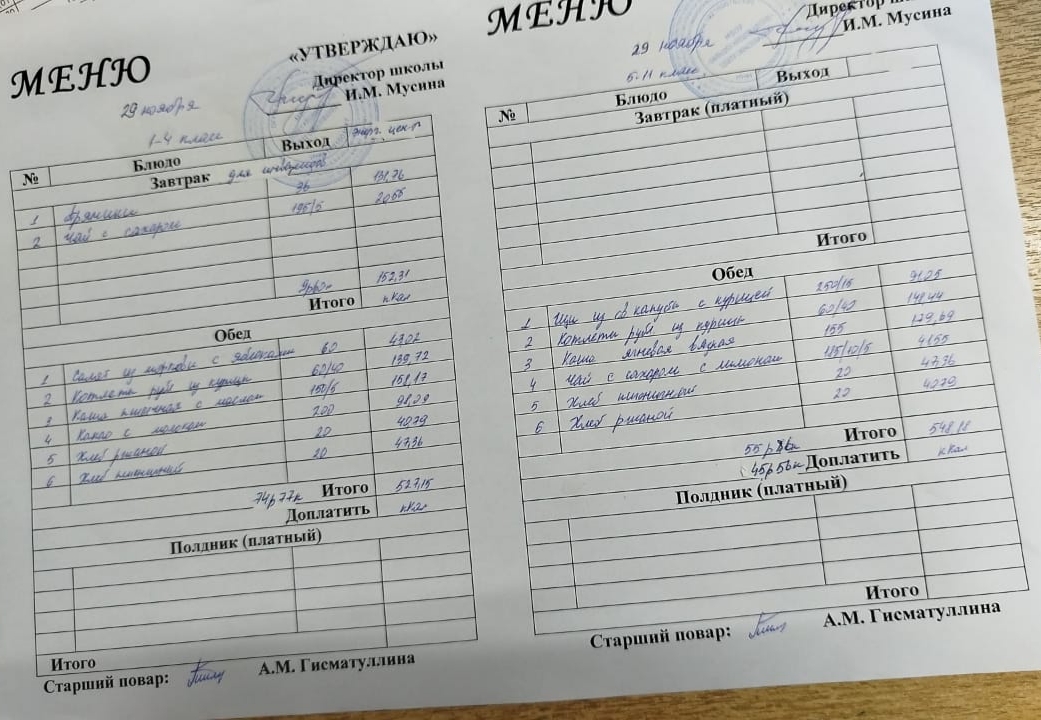 МЕНЮ
«УТВЕРЖДАЮ»
Директор школы
И.М. Мусина
29 ноября
1-4 класс
№ Блюдо Выход Энрг. цен-т
Завтрак для инвалидов
1 Пряники 36 131,76
2 Чай с сахаром 195/5 2055
Итого 152,31
кКал
Обед
1 Салат из моркови с яблоками 60 4302
2 Котлета руб из курицы 60/40 139,72
3 Каша пшеничная с маслом 150/5 158,17
4 Какао с молоком 200 98,09
5 Хлеб ржаной 20 4079
6 Хлеб пшеничный 20 47,36
74р 77к Итого 527,15
Доплатить кКал
Полдник (платный)
Итого
Старший повар: А.М. Гисматуллина
МЕНЮ
Директор
И.М. Мусина
29 ноября
5-11 класс
№ Блюдо Выход
Завтрак (платный)
Итого
Обед
1 Щи из св капусты с курицей 250/15 91,25
2 Котлета руб из курицы 60/40 148,44
3 Каша ячневая вязкая 155 179,69
4 Чай с сахаром с лимоном 185/10/5 4155
5 Хлеб пшеничный 20 47,36
6 Хлеб ржаной 20 4079
55р Итого 548,18
45р 56к Доплатить кКал
Полдник (платный)
Итого
Старший повар: А.М. Гисматуллина